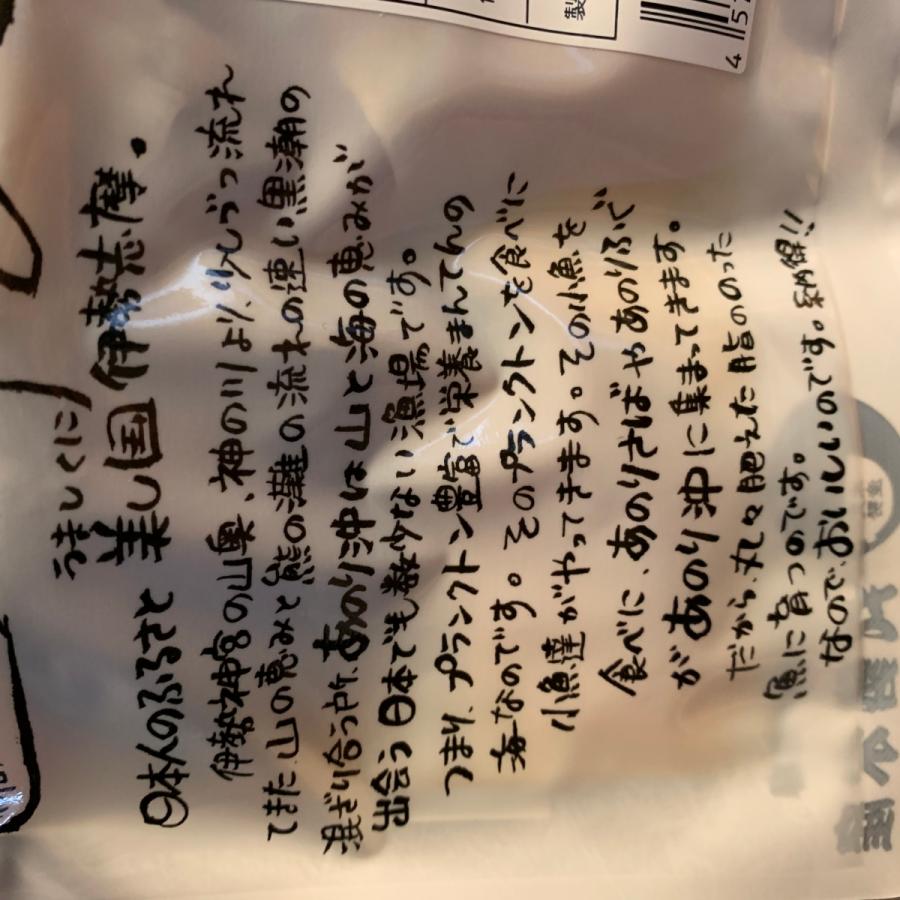 うましくに
日本人のふるさと 美し国 伊勢志摩。
伊勢神宮の山奥、神の川より、少しづつ流れ
てきた山の恵みと熊の灘の流れの速い黒潮の
混ざり合う所、あのり沖は山と海の恵みが
出会う日本でも数少ない漁場です。
つまり、プランクトン豊富で栄養まんてんの
海なのです。そのプランクトンを食べに
小魚達がやってきます。その小魚を
食べに、あのりさばやあのりふぐ
があのり沖に集まってきます。
だから、丸々肥えた脂ののった
魚に育つのです。
なので、おいしいのです。納得!!
製
4 5